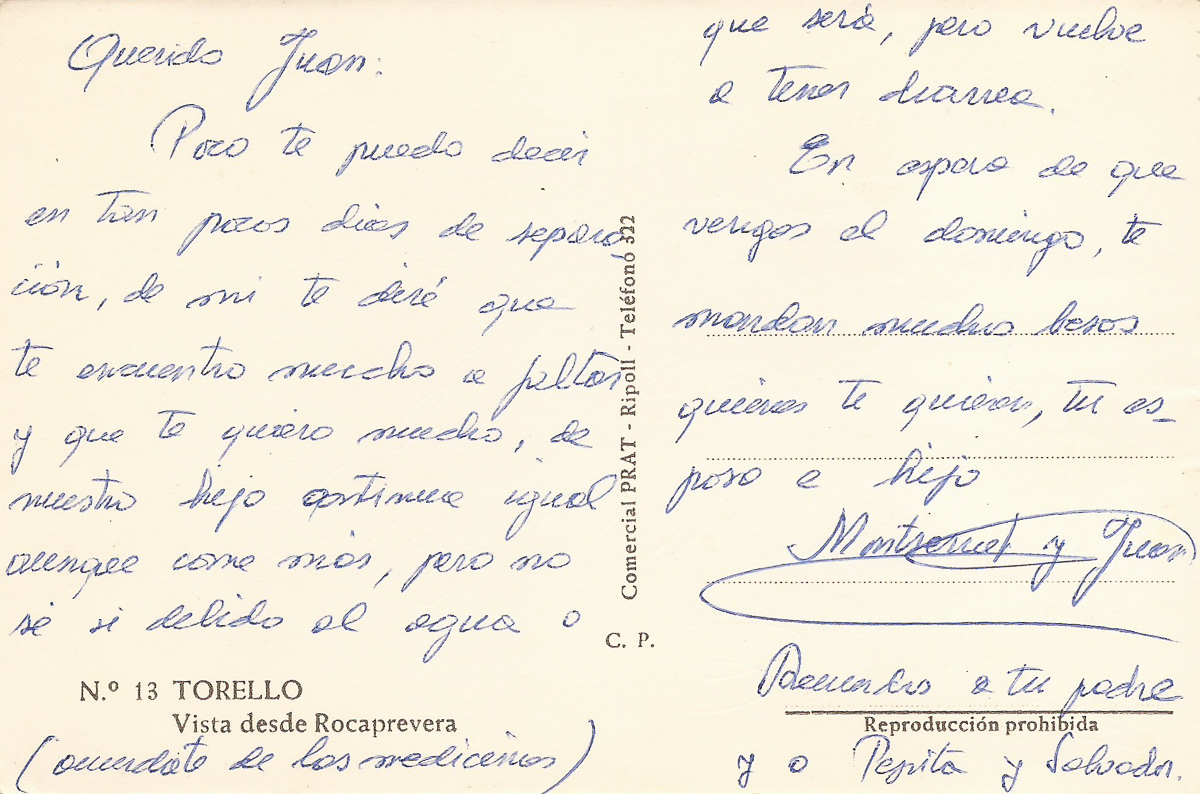 Querido Juan:
Poco te puedo decir
en tan pocos dias de separa
ción, de mi te diré que
te encuentro mucho a faltar
y que te quiero mucho, de
nuestro hijo continua igual
aunque come más, pero no
sé si debido al agua o
que será, pero vuelve
a tener diarrea.
En espera de que
vengas el domingo, te
mandan muchos besos
quienes te quieren, tu es-
posa e hijo
Montserrat y Juan
Recuerdos a tu padre
y a Pepita y Salvador.
(acuerdate de las medicinas)
Nº 13 TORELLO
Vista desde Rocaprevera
Comercial PRAT - Ripoll - Teléfono 322
C. P.
Reproducción prohibida